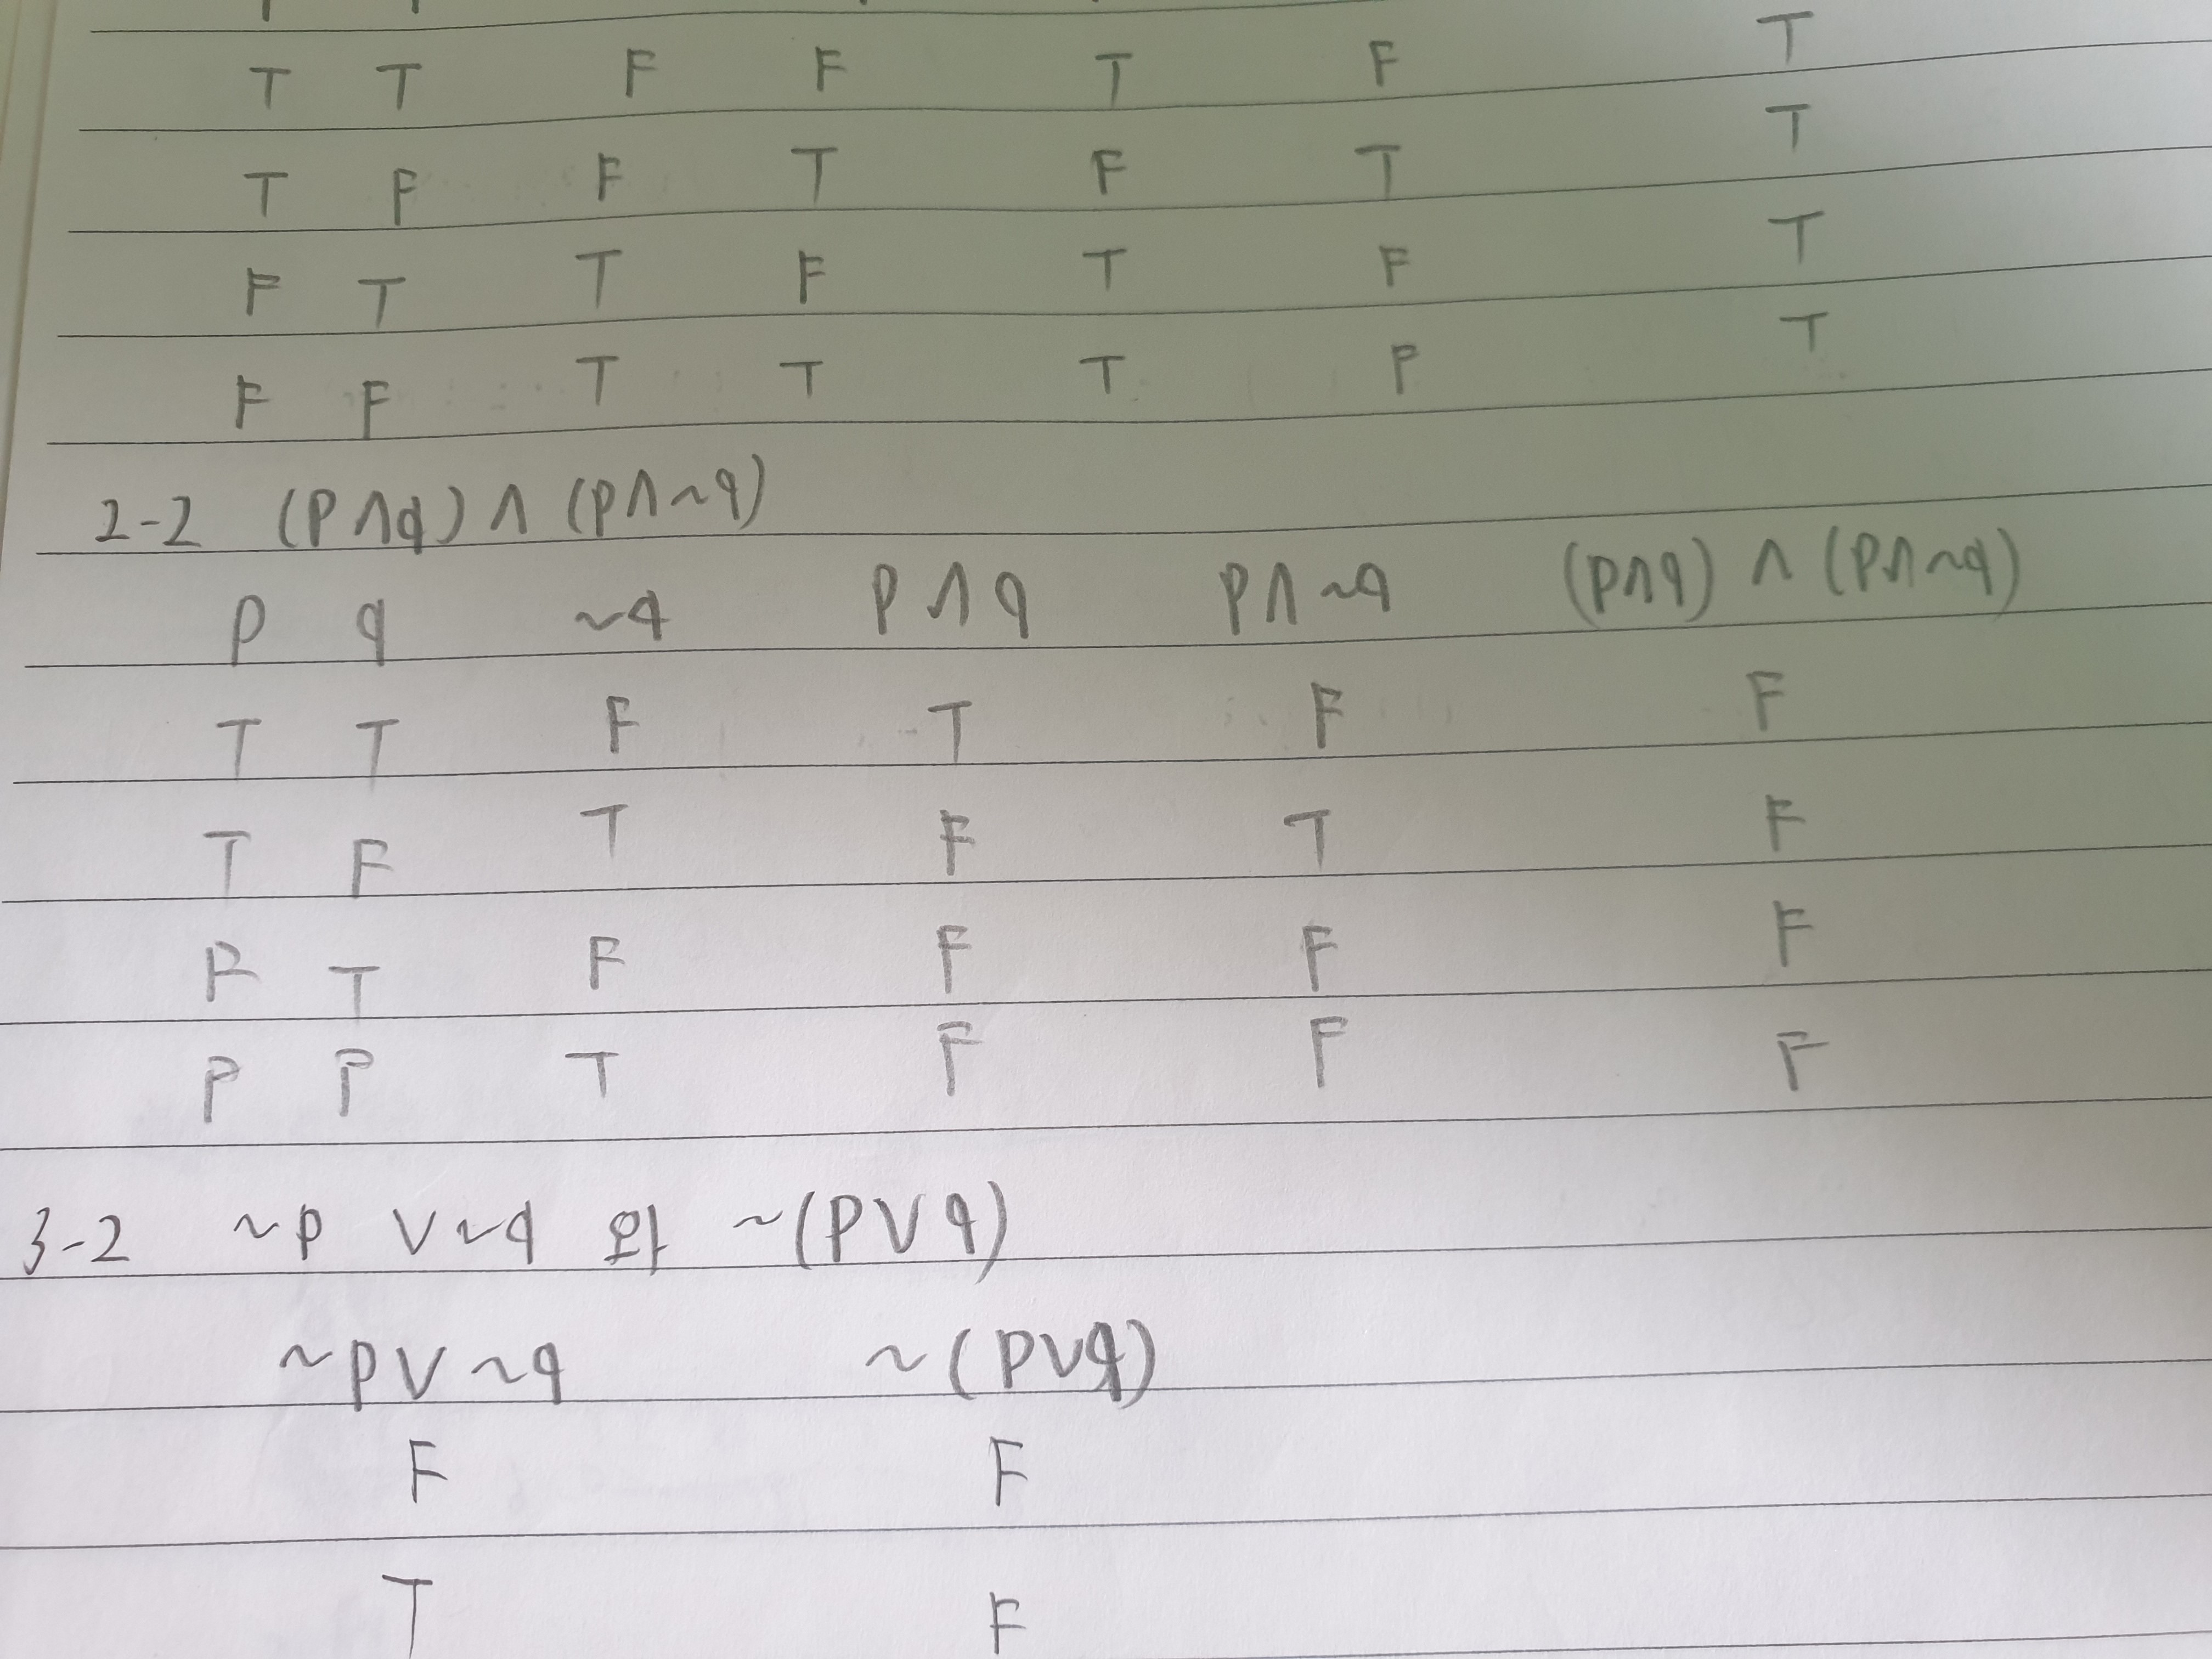 T T F F T F T
T F F T F T T
F T T F T F T
F F T T T F T
2-2 (P∧q) ∧ (P∧~q)
P q ~q P∧q P∧~q (P∧q) ∧ (P∧~q)
T T F T F F
T F T F T F
F T F F F F
F F T F F F
3-2 ~P ∨~q 와 ~(P∨q)
~P∨~q ~(P∨q)
F F
T F